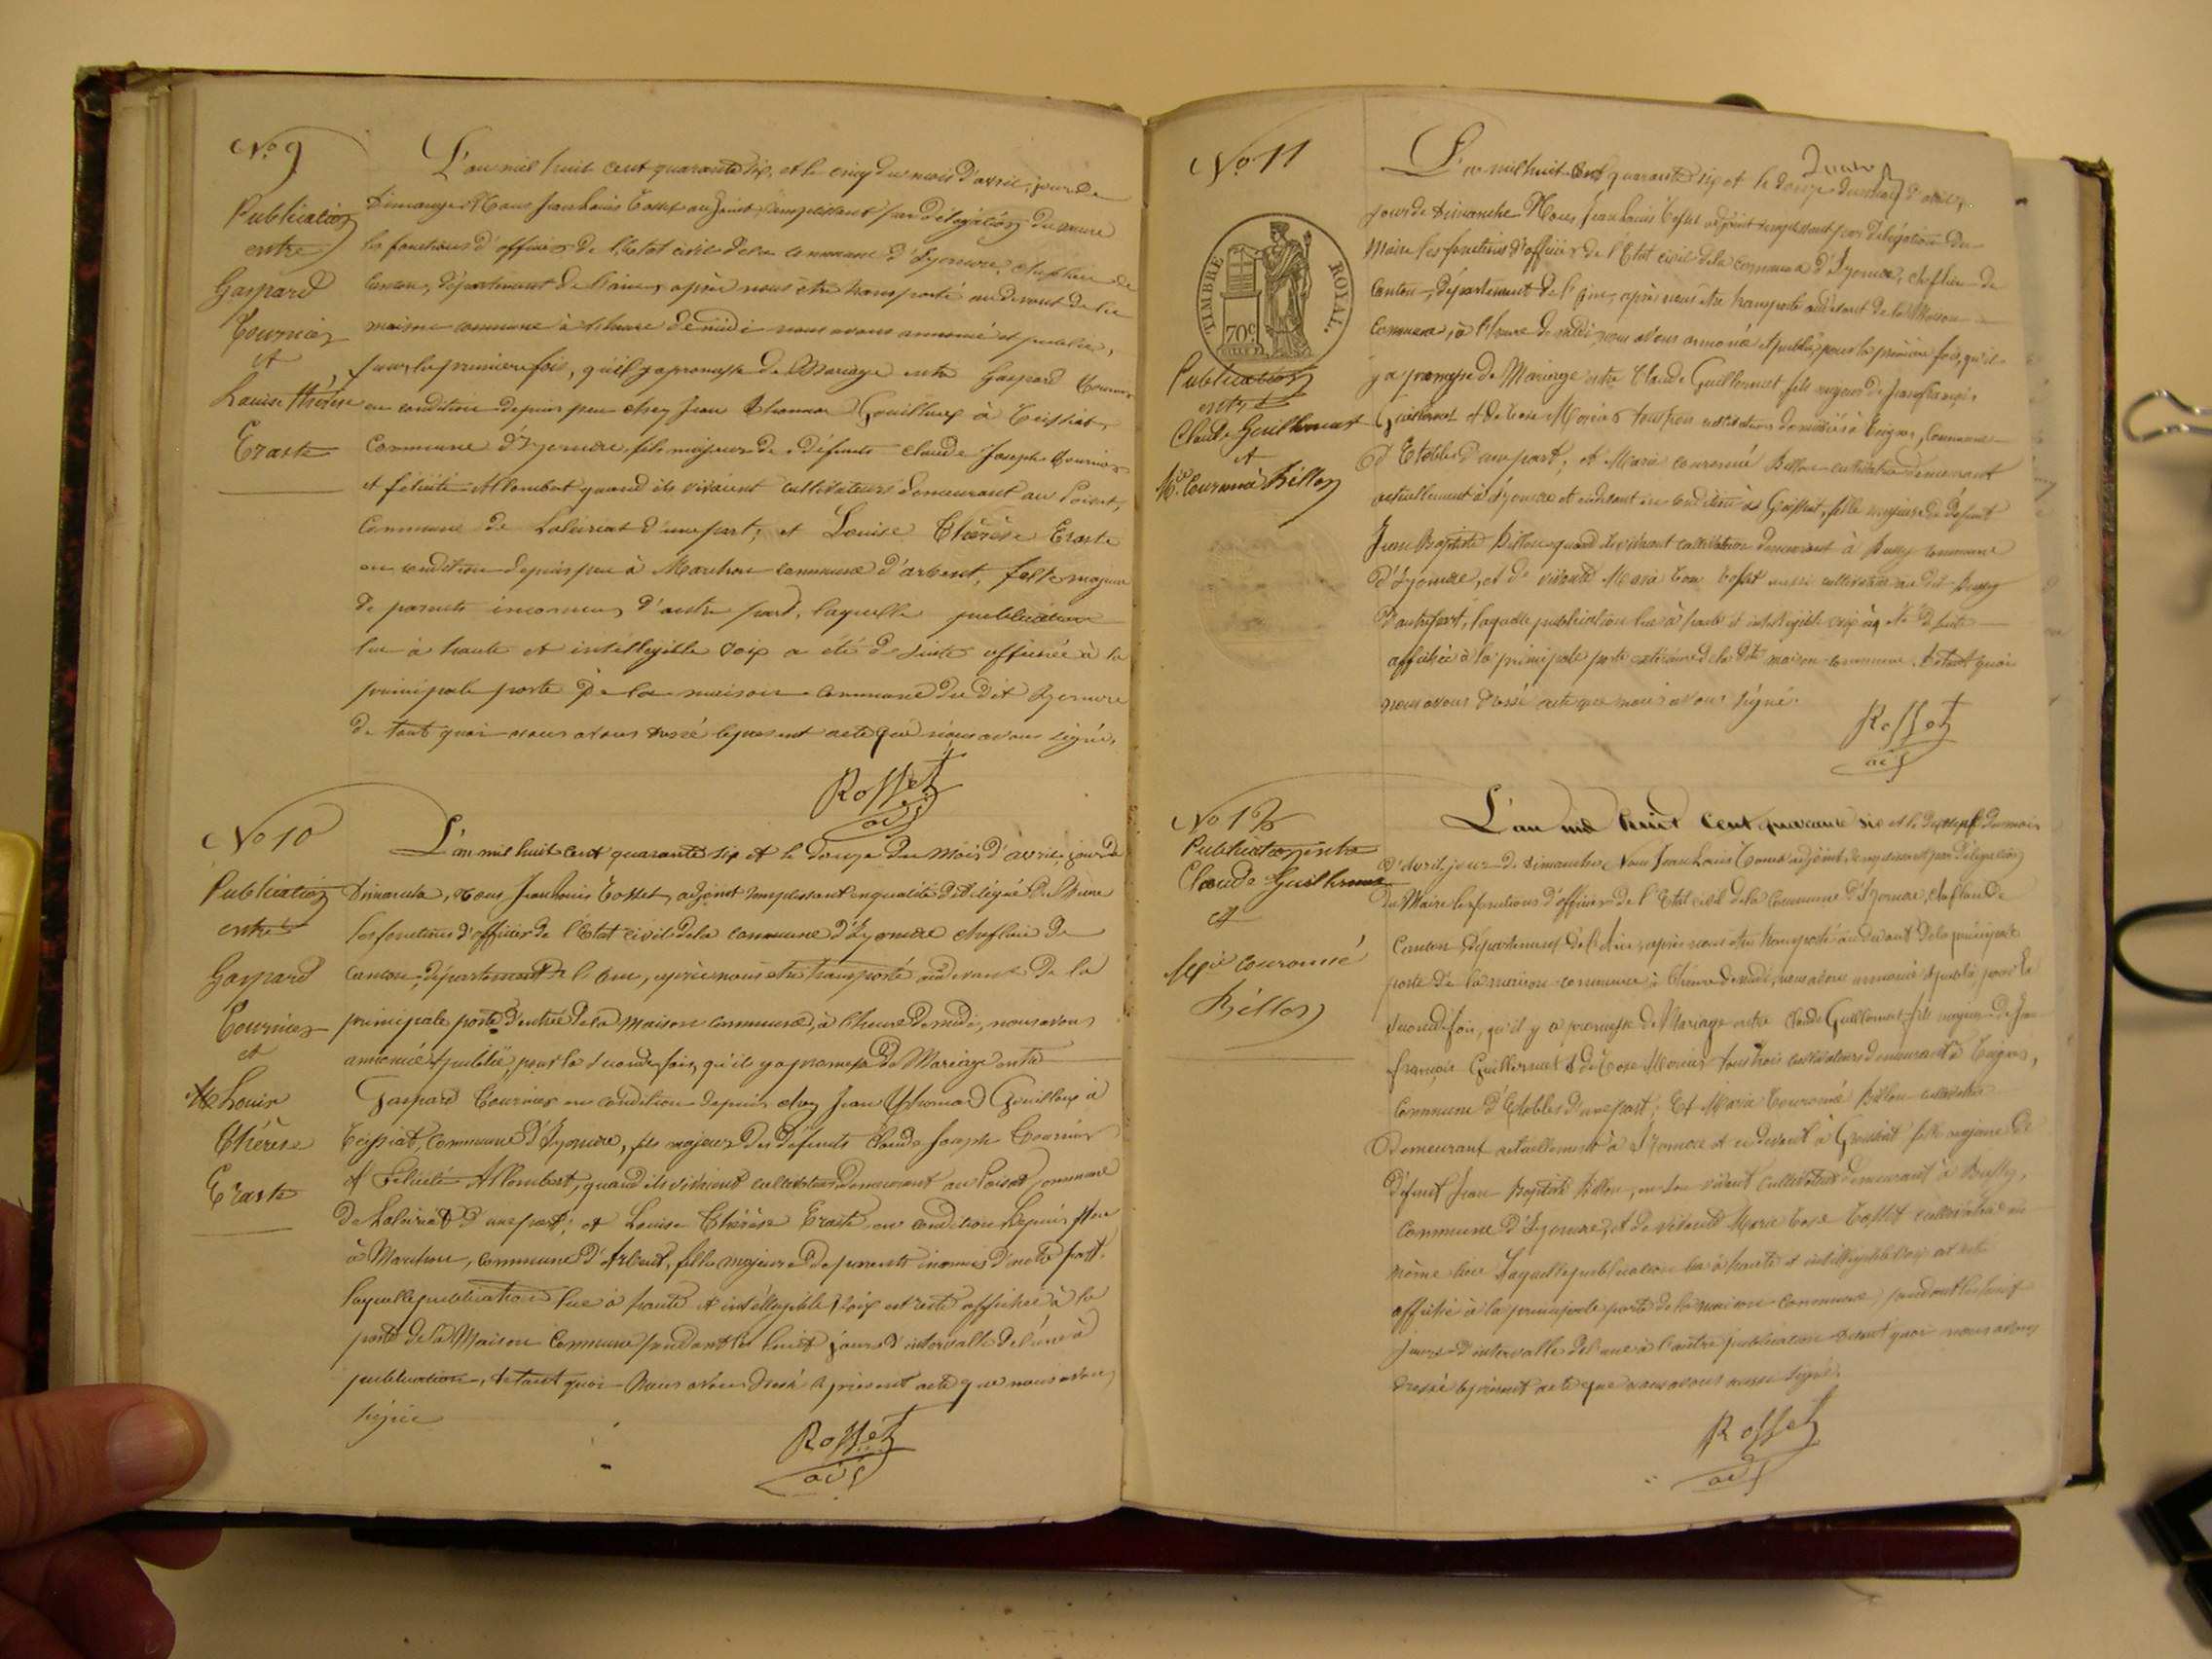 No 9
Publication
entre
Gaspard
Tournier
et
Louise thérèse
Eraste
L'an mil huit cent quarante six, et le cinq du mois d'avril, jour de
Dimanche Nous Jean Louis Rosset adjoint remplissant par délégation du maire
les fonctions d'officier de l'Etat civil de la commune d'Izernore, chef lieu de
Canton, département de l'ain, après nous être transporté au devant de la
maison commune à l'heure de midi nous avons annoncé et publié,
pour la première fois, qu'il y a promesse de Mariage entre Gaspard Tournier
en condition depuis peu chez Jean Guilloux à Ceissiat
Commune d'Izernore, fils majeur de défunts Claude Joseph Tournier
et félicité Allombert quand ils vivaient cultivateurs demeurant au
Commune de Laleyriat d'une part; et Louise Thérèse Eraste
en condition depuis peu à Marchon commune d'arbent, fille majeure
de parents inconnus, d'autre part, laquelle publication
lue à haute et intelligible voix a été de suite affichée à la
principale porte de la maison commune du dit Izernore
de tout quoi nous avons dressé le présent acte que nous avons signé.
Rosset
adj
No 10
Publication
entre
Gaspard
Tournier
et
Louise
Thérèse
Eraste
L'an mil huit cent quarante six et le douze du mois d'avril, jour de
Dimanche, Nous Jean Louis Rosset, adjoint remplissant en qualité de délégué du Maire
les fonctions d'officier de l'Etat civil de la commune d'Izernore chef lieu de
Canton, département de l'ain, après nous être transporté au devant de la
principale porte d'entrée de la maison commune, à l'heure de midi, nous avons
annoncé et publié, pour la seconde fois, qu'il y a promesse de Mariage entre
Gaspard Tournier en condition depuis chez Jean Guilloux à
Ceissiat, Commune d'Izernore, fils majeur des défunts Claude Joseph Tournier
et Félicité Allombert, quand ils vivaient cultivateurs demeurant au commune
de Laleyriat d'une part; et Louise Thérèse Eraste en condition depuis peu
à Marchon, commune d'Arbent, fille majeure de parents inconnus d'autre part.
laquelle publication lue à haute et intelligible voix est restée affichée à la
porte de la Maison Commune pendant les huit jours d'intervalle de l'une à
publication, de tout quoi Nous avons dressé le présent acte que nous avons
signé
Rosset
adj
No 11
TIMBRE ROYAL
70c
Publication
entre
Claude Guillermet
et
Mie Couronné Billon
L'an mil huit cent quarante six et le douze du mois d'avril,
jour de Dimanche Nous Jean Louis Rosset adjoint remplissant par délégation du
Maire les fonctions d'officier de l'Etat civil de la commune d'Izernore, chef lieu de
Canton, département de l'ain, après nous être transporté au devant de la Maison
Commune, à l'heure de midi, nous avons annoncé et publié, pour la première fois, qu'il
y a promesse de Mariage entre Claude Guillermet fils majeur de Jean françois
Guillermet et de tous trois cultivateurs domiciliés à Commune
d'Etables d'une part; et Marie couronné Billon cultivatrice demeurant
actuellement à Izernore et cidevant en condition à Groissiat, fille majeure de défunt
Jean Baptiste Billon quand il vivait cultivateur demeurant à Bussy commune
d'Izernore, et de vivante Marie Rosset aussi cultivatrice au dit Bussy
d'autre part, laquelle publication lue à haute et intelligible voix a été de suite
affichée à la principale porte extérieure de la dite maison commune. De tout quoi
nous avons dressé acte que nous avons signé.
Rosset
adj
No 12
Publication entre
Claude Guillermet
et
Mie couronné
Billon
L'an mil huit cent quarante six et le dix neuf du mois
d'avril, jour de Dimanche Nous Jean Louis Rosset adjoint, remplissant par délégation
du Maire les fonctions d'officier de l'Etat civil de la Commune d'Izernore, chef lieu de
Canton, département de l'Ain, après nous être transporté au devant de la principale
porte de la maison commune à l'heure de midi, nous avons annoncé et publié pour la
seconde fois, qu'il y a promesse de Mariage entre Claude Guillermet fils majeur de Jean
françois Guillermet et de tous trois cultivateurs demeurant à
Commune d'Etables d'une part; Et Marie Couronné Billon cultivatrice
demeurant actuellement à Izernore et ci devant à Groissiat fille majeure de
défunt Jean Baptiste Billon, en son vivant cultivateur demeurant à Bussy,
commune d'Izernore, et de vivante Marie Rosset cultivatrice au
même lieu Laquelle publication lue à haute et intelligible voix est resté
affichée à la principale porte de la maison commune, pendant les huit
jours d'intervalle de l'une à l'autre publication de tout quoi nous avons
dressé le présent acte que nous avons aussi signé.
Rosset
adj